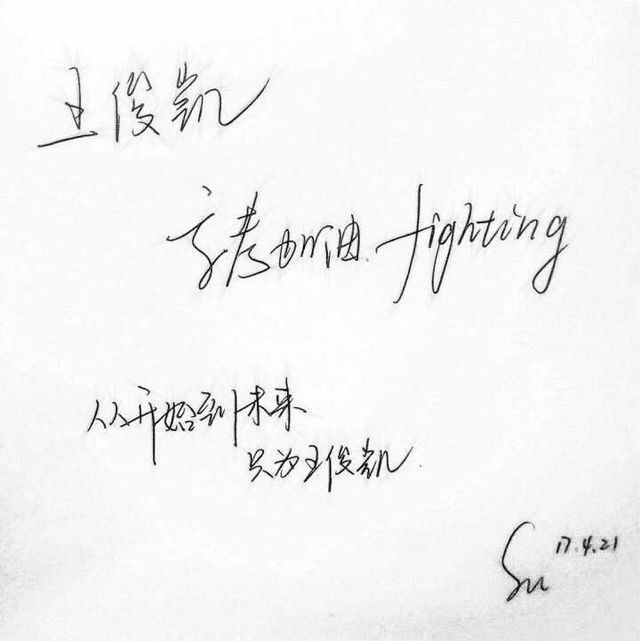 王俊凯
高考加油 fighting
从开始到未来
只为王俊凯
Su 17.4.21